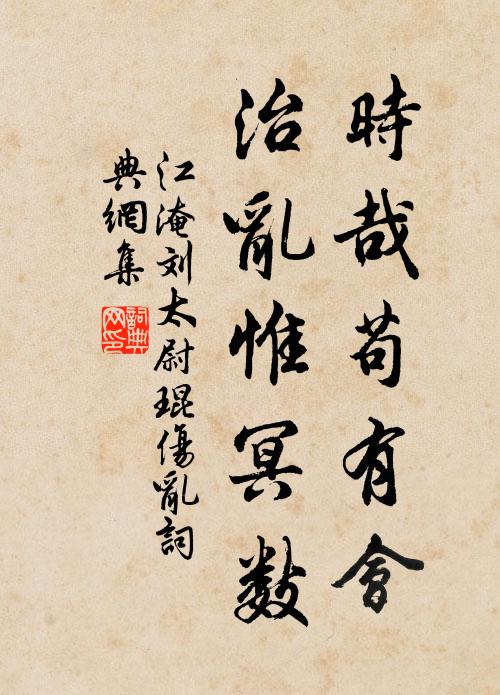 時哉苟有會
治亂惟冥數
江淹刘太尉琨傷亂詞
典網集
詞典
网印